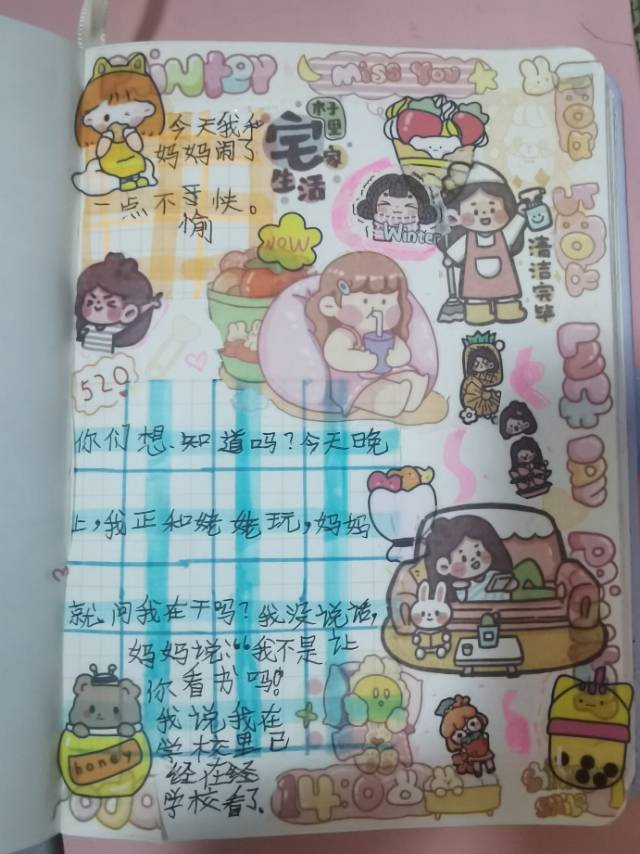 Winter
Miss You
今天我和
妈妈闹了
一点不愉快。
村里
宅家
生活
Winter
WOW
清洁完毕
520
你们想知道吗？今天晚
上，我正和姥姥玩，妈妈
就问我在干吗？我没说话，
妈妈说：“我不是让
你看书吗？
我说我在
学校里已
经在经
学校看了、
honey
14:00